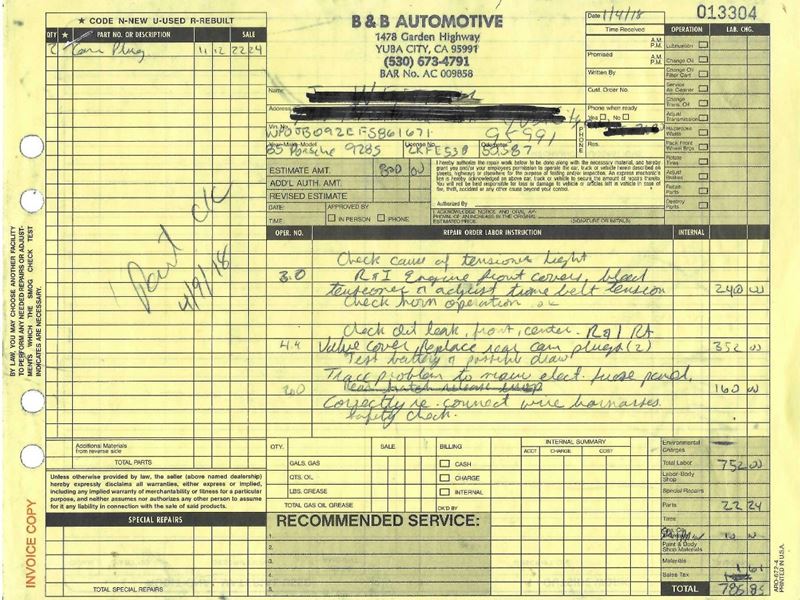 ★ CODE N-NEW U-USED R-REBUILT
QTY ★ PART NO. OR DESCRIPTION SALE
2 Cam Plug 11 12 22 24
B & B AUTOMOTIVE
1478 Garden Highway
YUBA CITY, CA 95991
(530) 673-4791
BAR No. AC 009858
Date 1/4/18
013304
Time Received
A.M.
P.M.
Promised
A.M.
P.M.
Written By
Cust. Order No.
Phone when ready
Yes No
PHONE
Res.
OPERATION LAB. CHG.
Lubrication
Change Oil
Change Oil
Filter Cart
Service
Air Cleaner
Change
Trans. Oil
Adjust
Transmission
Hazardous
Waste
Pack Front
Wheel Brgs
Rotate
Tires
Adjust
Brakes
Retain
Parts
Destroy
Parts
Name
Address
95991
Vin. No.
WP0JB092CFS861671
Year-Make-Model
85 Porsche 928S 2KFE530 85587
ESTIMATE AMT. 800 00
ADD'L AUTH. AMT.
REVISED ESTIMATE
DATE: APPROVED BY
TIME: IN PERSON PHONE
I hereby authorize the repair work below to be done along with the necessary material, and hereby
grant you and/or your employees permission to operate the car, truck or vehicle herein described on
streets, highways or elsewhere for the purpose of testing and/or inspection. An express mechanic's
lien is hereby acknowledged on above car, truck or vehicle to secure the amount of repairs thereto.
You will not be held responsible for loss or damage to vehicle or articles left in vehicle in case of
fire, theft, accident or any other cause beyond your control.
Authorized By
I ACKNOWLEDGE NOTICE AND ORAL AP-
PROVAL OF AN INCREASE IN THE ORIGINAL
ESTIMATED PRICE. (SIGNATURE OR INITIALS)
OPER. NO. REPAIR ORDER LABOR INSTRUCTION INTERNAL
Check cause of tensioner light
3.0 R&I Engine front covers, bleed
tensioner & adjust time belt tension 240 00
Check horn operation. ok
Check oil leak, front, center. R&I Rt
4.4 Valve cover, Replace rear cam plugs (2) 352 00
Test battery & possible draw
Trace problem to main elect. fuse panel.
2.0 Rear hatch release 160 00
Correctly re-connect wire harnasses.
Safety check.
Paid CK
4/9/18
BY LAW, YOU MAY CHOOSE ANOTHER FACILITY
TO PERFORM ANY NEEDED REPAIRS OR ADJUST-
MENTS WHICH THE SMOG CHECK TEST
INDICATES ARE NECESSARY.
INVOICE COPY
Additional Materials
from reverse side
TOTAL PARTS
Unless otherwise provided by law, the seller (above named dealership)
hereby expressly disclaims all warranties, either express or implied,
including any implied warranty of merchantability or fitness for a particular
purpose, and neither assumes nor authorizes any other person to assume
for it any liability in connection with the sale of said products.
SPECIAL REPAIRS
TOTAL SPECIAL REPAIRS
QTY. SALE
GALS. GAS
QTS. OIL
LBS. GREASE
TOTAL GAS OIL GREASE
BILLING
CASH
CHARGE
INTERNAL
OK'D BY
INTERNAL SUMMARY
ACCT CHARGE COST
RECOMMENDED SERVICE:
1.
2.
3.
4.
5.
Environmental
Charges
Total Labor 752 00
Labor-Body
Shop
Special Repairs
Parts 22 24
Tires
10 00
Paint & Body
Shop Materials
Materials
Sales Tax 1 61
TOTAL 785 85
ARO-672-4
PRINTED IN U.S.A.